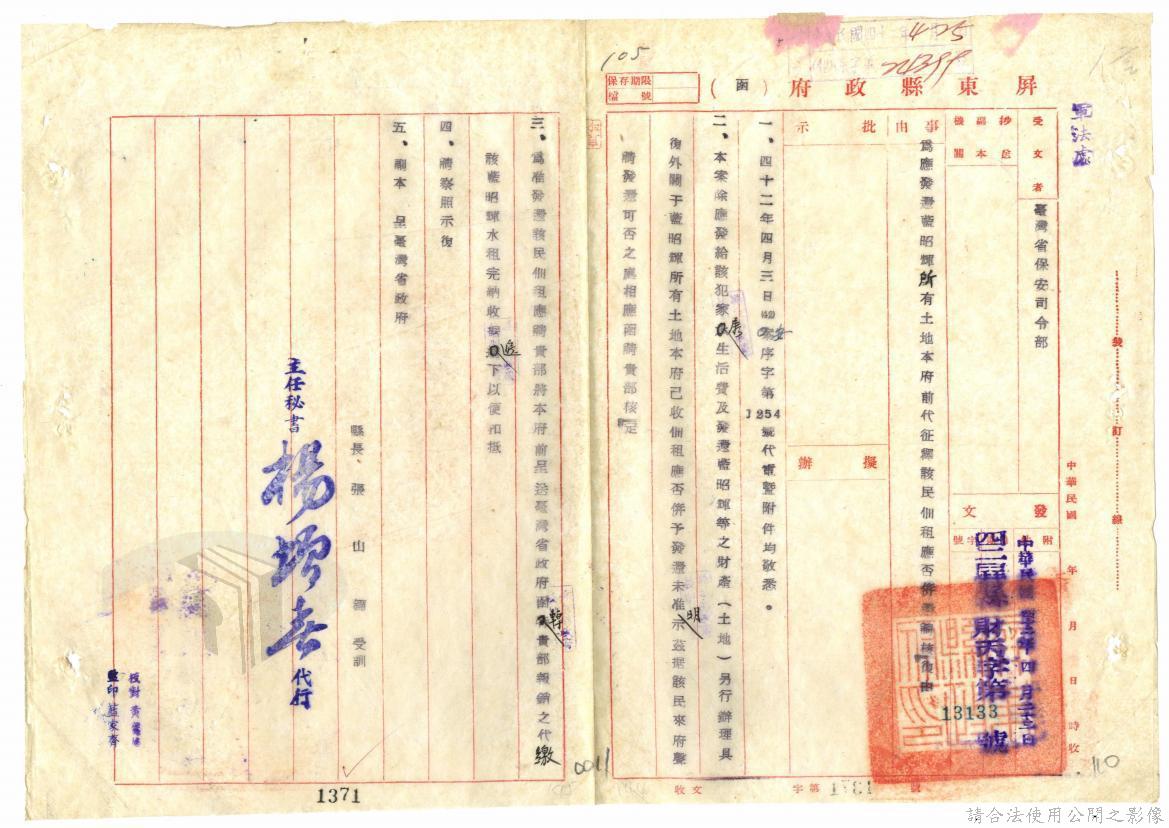 105
425
屏東縣政府（函）
保存期限
檔號
軍法處
受文者
臺灣省保安司令部
抄送副本機關
事由
為應發還藍昭輝所有土地本府前代征釋該民佃租應否併發請核復由
批示
擬辦
發文
附件
字號
中華民國
年
月
日
時收
中華民國四十二年四月二十三日
財天字第
13133
號
裝
訂
線
一、四十二年四月三日安序字第1254號代電暨附件均敬悉。
二、本案除應發給該犯家屬生活費及發還藍昭輝等之財產（土地）另行辦理具
復外關于藍昭輝所有土地本府已收佃租應否併予發還未准明示茲據該民來府聲
請發還可否之處相應函請貴部核定
三、為准發還該民佃租應請貴部將本府前呈送臺灣省政府函轉貴部報銷之代繳
該藍昭輝水租完納收據退下以便扣抵
四、請察照示復
五、副本呈臺灣省政府
縣長張山鐘受訓
主任秘書楊增春代行
校對黃
監印藍家齊
收文
字第1781號
0011
110
1371
請合法使用公開之影像